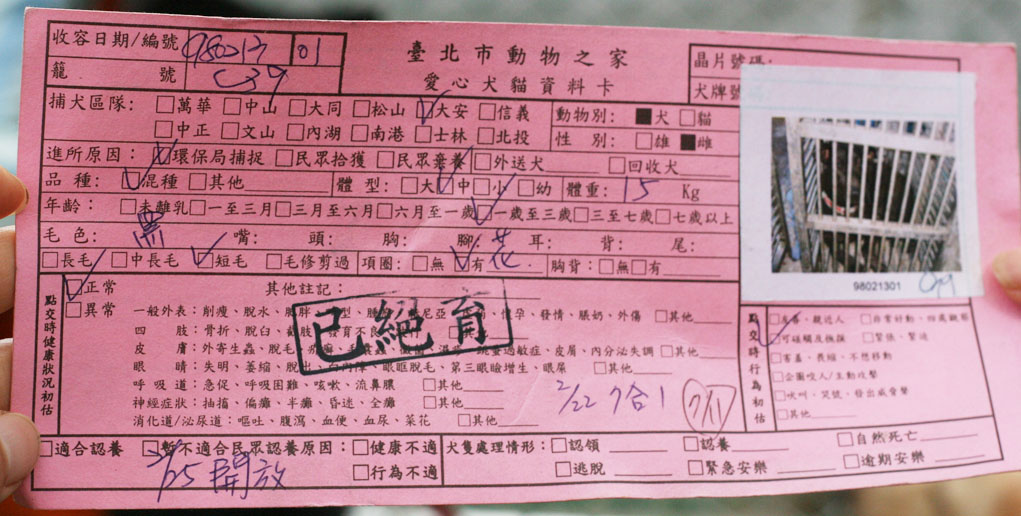 收容日期/編號 980213 01
籠 號 C39
臺北市動物之家
愛心犬貓資料卡
晶片號碼:
犬牌號
捕犬區隊: □萬華 □中山 □大同 □松山 ☑大安 □信義
□中正 □文山 □內湖 □南港 □士林 □北投
動物別: ■犬 □貓
性 別: □雄 ■雌
進所原因: ☑環保局捕捉 □民眾拾獲 □民眾棄養 □外送犬 □回收犬
品 種: ☑混種 □其他 體 型: □大 ☑中 □小 □幼 體重: 15 Kg
年齡: □未離乳 □一至三月 □三月至六月 □六月至一歲 ☑一歲至三歲 □三至七歲 □七歲以上
毛 色: 黑 嘴: 頭: 胸: 腳: 耳: 背: 尾:
□長毛 □中長毛 ☑短毛 □毛修剪過 項圈: □無 ☑有 花 胸背: □無 □有
98021301
點交時健康狀況初估
☑正常 其他註記:
□異常 一般外表: 削瘦、脫水、懷孕、發情、脹奶、外傷 □其他
四 肢: 骨折、脫臼、發育不良 □其他
皮 膚: 外寄生蟲、脫毛、過敏症、皮屑、內分泌失調 □其他
眼 睛: 失明、萎縮、眼眶脫毛、第三眼瞼增生、眼屎 □其他
呼 吸 道: 急促、呼吸困難、咳嗽、流鼻膿 □其他
神經症狀: 抽搐、偏癱、半癱、昏迷、全癱 □其他
消化道/泌尿道: 嘔吐、腹瀉、血便、血尿、菜花 □其他
已絕育
2/22 7合1
點交時行為初估
□友善、親近人 □非常好動、四處觀察
☑可碰觸及撫摸 □緊張、緊迫
□害羞、畏縮、不想移動
□企圖咬人/主動攻擊
□吠叫、哭號、發出威脅聲
□其他
□適合認養 □暫不適合民眾認養原因: □健康不適
□行為不適
2/25 開放
犬隻處理情形: □認領 □認養 □自然死亡
□逃脫 □緊急安樂 □逾期安樂